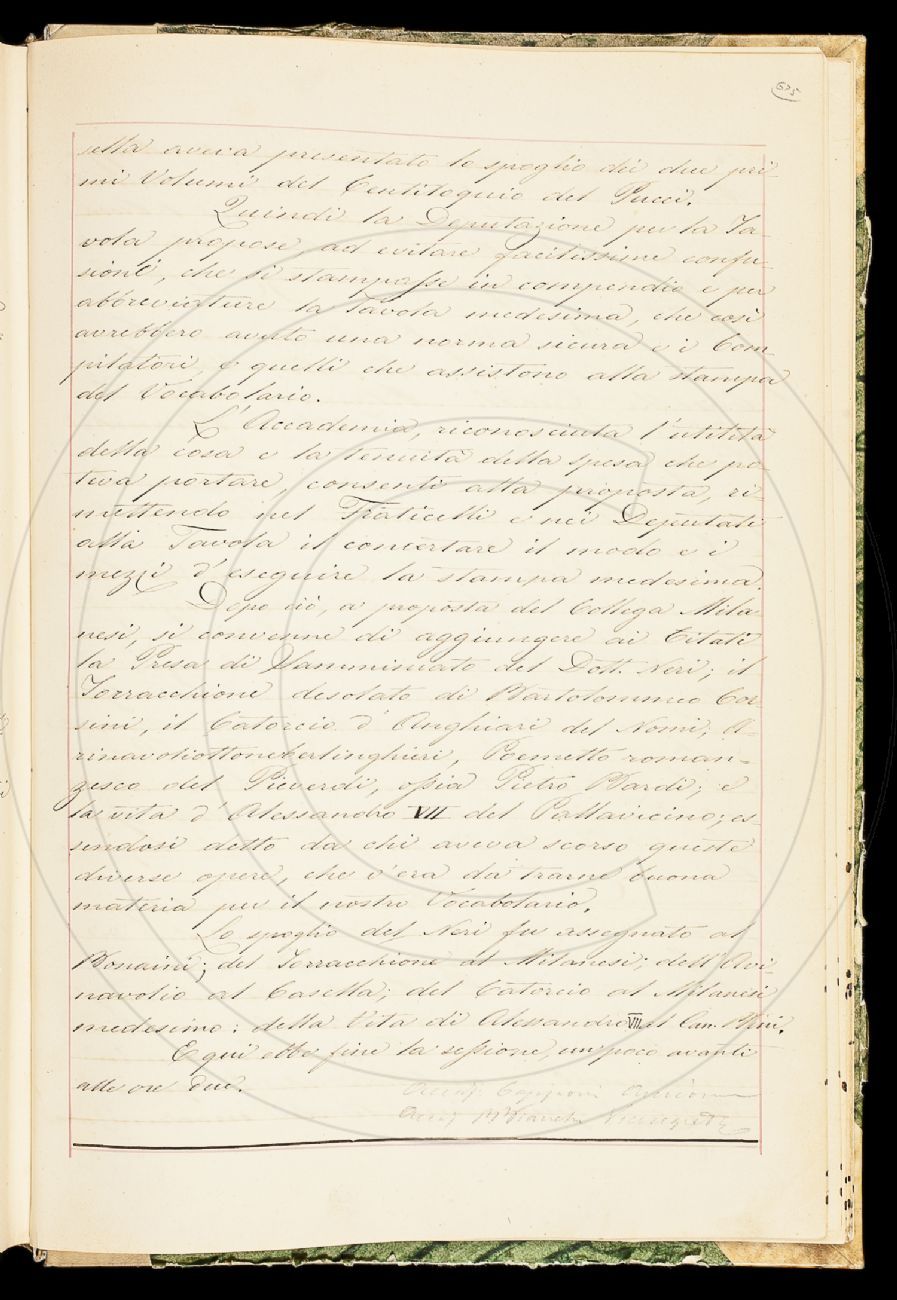 675
sella aveva presentato lo spoglio dei due pri
mi Volumi del Centiloquio del Pucci.
Quindi la Deputazione per la Ta-
vola propose, ad evitare facilissime confu-
sioni, che si stampasse in compendio e per
abbreviature la Tavola medesima, che così
avrebbero avuto una norma sicura e i Com-
pilatori, e quelli che assistono alla stampa
del Vocabolario.
L'Accademia, riconosciuta l'utilità
della cosa e la tenuità della spesa che po-
teva portare, consentì alla proposta, ri-
mettendo nel Fraticelli e nei Deputati
alla Tavola il concertare il modo e i
mezzi d'eseguire la stampa medesima.
Dopo ciò, a proposta del Collega Mila-
nesi, si convenne di aggiungere ai Citati
la Presa di Samminiato del Dott. Neri; il
Torracchione desolato di Bartolommeo Cor-
sini, il Catorcio d'Anghiari del Nomi, A-
vinavoliottoneberlinghieri, Poemetto roman-
zesco del Piverdi, ossia Pietro Bardi; e
la vita d'Alessandro VII del Pallavicino; es-
sendosi detto da chi aveva scorso queste
diverse opere, che v'era da trarne buona
materia per il nostro Vocabolario.
Lo spoglio del Neri fu assegnato al
Bonaini; del Torracchione al Milanesi; dell'Avi-
navolio al Casella; del Catorcio al Milanesi
medesimo: della Vita di Alessandro VII al Can. Bini.
E qui ebbe fine la sessione, un poco avanti
alle ore due.
Accad. Capponi
Accad. B. Bianchi Vicesegret.